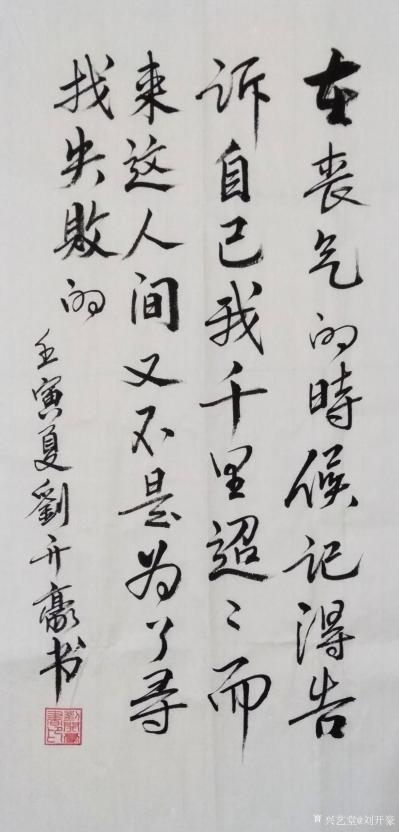 在丧气的時候记得告
訴自己我千里迢〻而
来这人间又不是为了寻
找失敗的
壬寅夏劉开豪书
兴艺堂@刘开豪